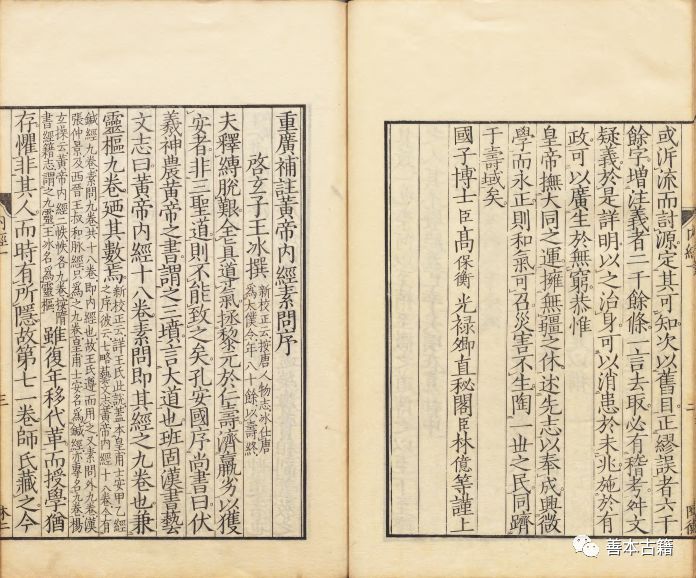 或泝流而討源定其可知次以舊目正繆誤者六千
餘字增注義者二千餘條一言去取必有稽考舛文
疑義於是詳明以之治身可以消患於未兆施於有
政可以廣生於無窮恭惟
皇帝撫大同之運擁無疆之休述先志以奉成興微
學而永正則和氣可召災害不生陶一世之民同躋
于壽域矣
國子博士臣高保衡 光祿卿直秘閣臣林億等謹上
重廣補註黃帝內經素問序
啓玄子王冰撰
新校正云按唐人物志冰仕唐
爲太僕令年八十餘以壽終
夫釋縛脫艱全真導氣拯黎元於仁壽濟羸劣以獲
安者非三聖道則不能致之矣孔安國序尚書曰伏
羲神農黃帝之書謂之三墳言大道也班固漢書藝
文志曰黃帝內經十八卷素問即其經之九卷也兼
靈樞九卷廼其數焉
新校正云詳王氏此說蓋本皇甫士安甲乙經
之序彼云七略藝文志黃帝內經十八卷今有
鍼經九卷素問九卷共十八卷即內經也故王氏遵而用之又素問外九卷漢
張仲景及西晉王叔和脉經只爲之九卷皇甫士安名爲鍼經亦專名九卷楊
玄操云黃帝內經二帙帙各九卷按隋
書經籍志謂之九靈王冰名爲靈樞
雖復年移代革而授學猶
存懼非其人而時有所隱故第七一卷師氏藏之今
內經一
三
善本古籍